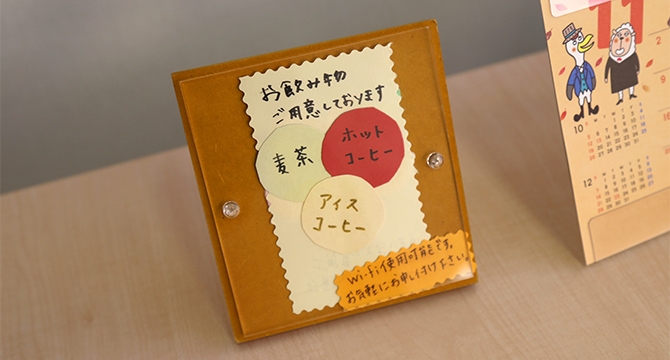 お飲み物
ご用意しております
麦茶
ホット
コーヒー
アイス
コーヒー
Wi-Fi使用可能です。
お気軽にお申し付け下さい。
11
10
12
2
9